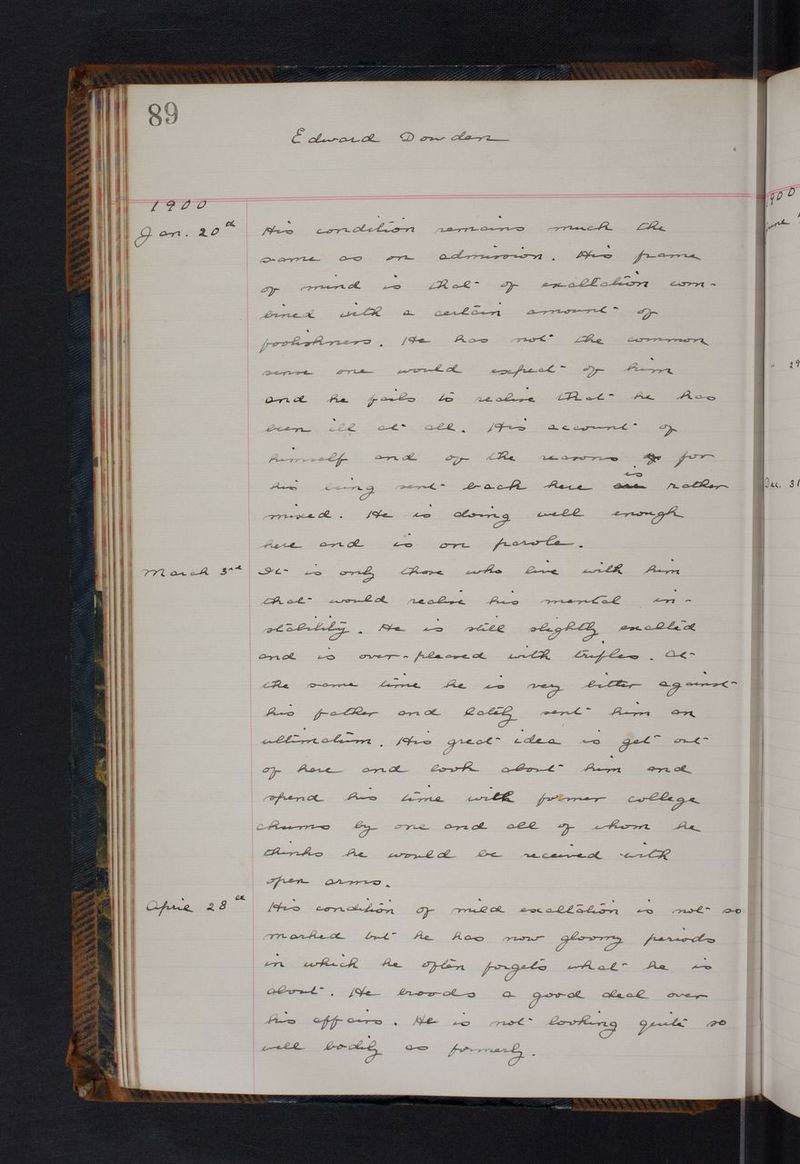 89
Edward Dowden
1900
Jan. 20th His condition remains much the
same as on admission. His frame
of mind is that of exaltation com-
bined with a certain amount of
foolishness. He has not the common
sense one would expect of him
and he fails to realise that he has
been ill at all. His account of
himself and of the reasons for
his being sent back here is rather
mixed. He is doing well enough
here and is on parole.
March 3rd It is only those who live with him
that would realise his mental in-
stability. He is still slightly exalted
and is over-pleased with trifles. At
the same time he is very bitter against
his father and lately sent him an
ultimatum. His great idea is get out
of here and look about him and
spend his time with former college
chums by one and all of whom he
thinks he would be received with
open arms.
April 28th His condition of mild exaltation is not so
marked but he has now gloomy periods
in which he often forgets what he is
about. He broods a good deal over
his affairs. He is not looking quite so
well bodily as formerly.
1900
" 29
Dec. 31